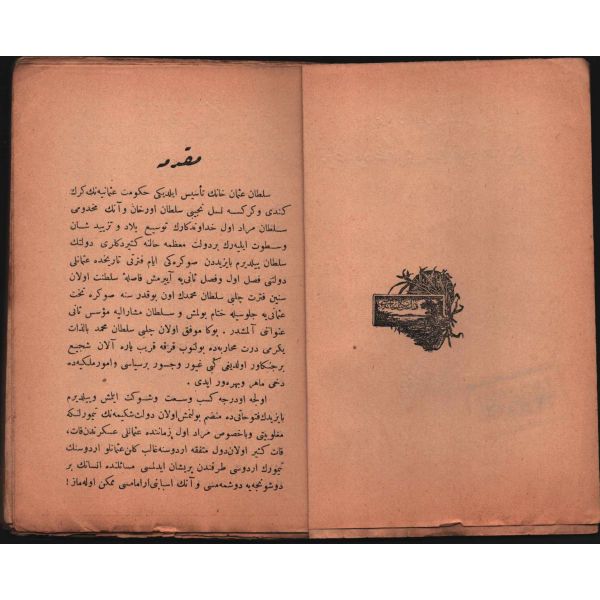 مقدمه
سلطان عثمان خانك تأسیس ایلدیکی حکومت عثمانیه‌نك کرك
کندی وکرکسه نسل نجیبی سلطان اورخان وآنك مخدومی
سلطان مراد اول خداوندکارك توسیع بلاد و تزیید شان
وسطوت ایلیه‌رك بردولت معظمه حالنه کتیردکلری دولتك
سلطان ییلدیرم بایزیددن صوکره‌کی ایام فترتی تاریخده عثمانلی
دولتی فصل اول وفصل ثانی‌یه آییرمش فاصلهٔ سلطنت اولان
سنین فترت چلبی سلطان محمدك اون بوقدر سنه صوکره تخت
عثمانی‌یه جلوسیله ختام بولمش و سلطان مشارالیه مؤسس ثانی
عنواننی آلمشدر . بوکا موفق اولان چلبی سلطان محمد بالذات
یکرمی درت محاربه‌ده بولنوب قرقه قریب یاره آلان شجیع
برجنکاور اولدیغی کبی غیور وجسور برسیاسی وامورملکیه‌ده
دخی ماهر وبهره‌ور ایدی .
اولجه اودرجه کسب وسعت وشوکت ایتمش وییلدیرم
بایزیدك فتوحاتی‌ده منضم بولنمش اولان دولت شکیمه‌نك تیمورلنکه
مغلوبیتی وباخصوص مراد اول زماننده عثمانلی عسکرندن قات
قات کثیر اولان دول متفقه اردوسنه غالب کلن عثمانلو اردوسنك
تیمورك اردوسی طرفندن پریشان ایدلمسی مسائلنده انسانك بر
دوشونجه‌یه دوشمه‌مسی وآنك اسبابنی آرامامسی ممکن اوله‌ماز !